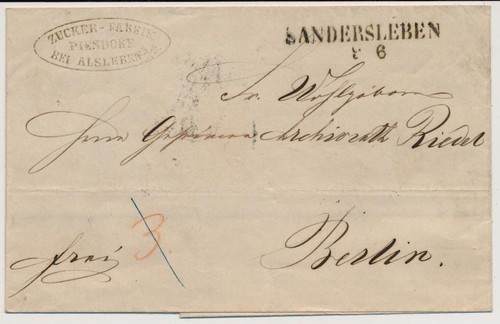 ZUCKER-FABRIK
PIESDORF
BEI ALSLEBEN
SANDERSLEBEN
6
Sr. Wohlgeboren
Herrn Geheimen Archivrath Riedel
3.
frei
Berlin.